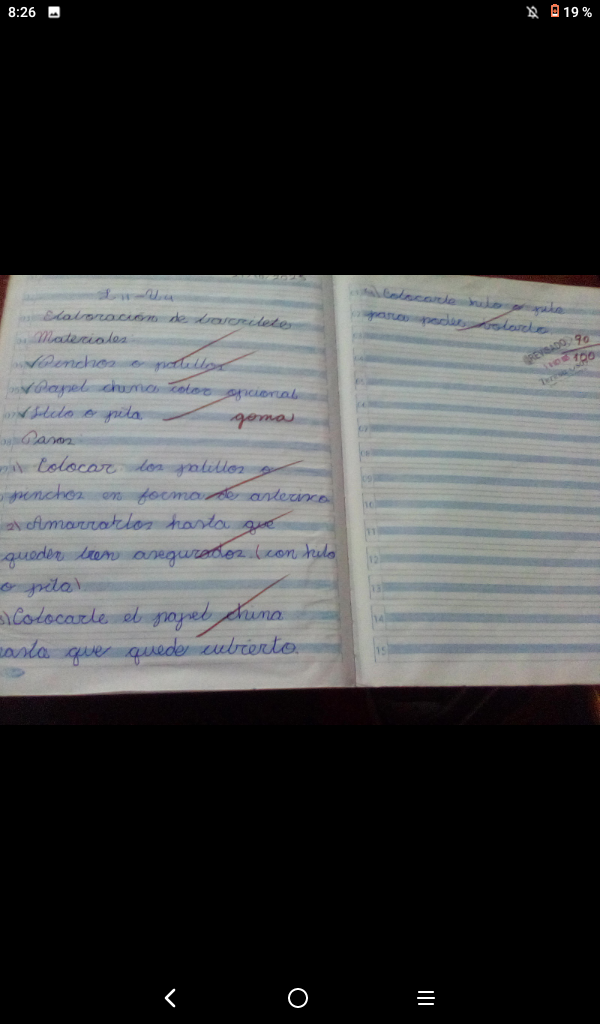 8:26
19 %
Elaboración de barriletes
Materiales
✓Pinchos o palillos
✓Papel china color opcional
✓Hilo o pita goma
Pasos
1) Colocar los palillos o
pinchos en forma de asterisco
2) Amarrarlos hasta que
queden bien asegurados. (con hilo
o pita)
3) Colocarle el papel china
hasta que quede cubierto.
4) Colocarle hilo o pita
para poder volarlo.
REVISADO
90
100
11
12
13
14
15